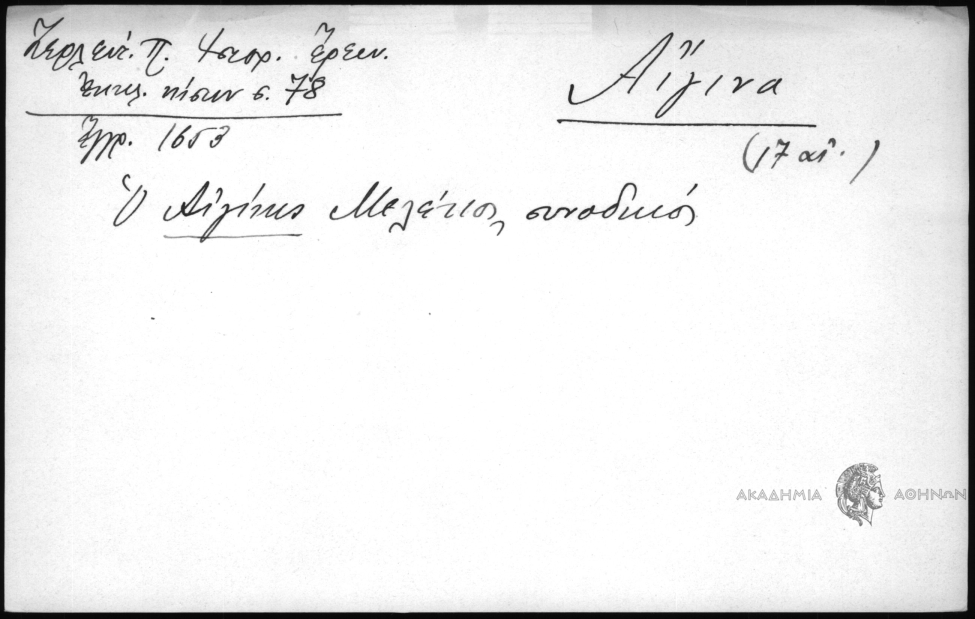 Ζερλέντ. Π. Ἱστορ. Ἔρευν.
Ἐκκλ. νήσων σ. 78
Ἔγγρ. 1653
Αἴγινα
(17 αἰ.)
Ὁ Αἰγίνης Μελέτιος, συνοδικός
ΑΚΑΔΗΜΙΑ ΑΘΗΝΩΝ